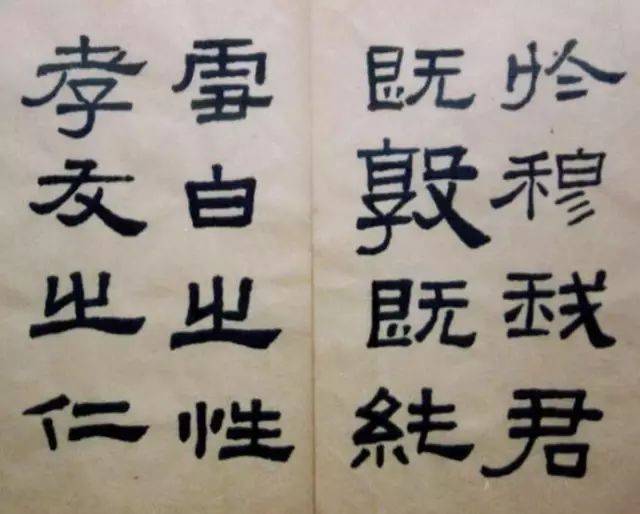 於穆我君
既敦既純
雪白之性
孝友之仁